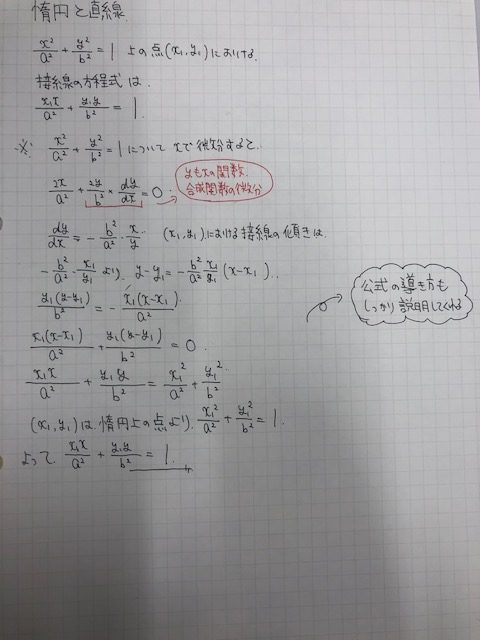 楕円と直線
x²/a² + y²/b² = 1 上の点(x₁, y₁)における
接線の方程式は
x₁x/a² + y₁y/b² = 1.
※ x²/a² + y²/b² = 1 について xで微分すると
2x/a² + 2y/b² × dy/dx = 0.
yもxの関数.
合成関数の微分
dy/dx = - b²/a² · x/y (x₁, y₁)における接線の傾きは
- b²/a² · x₁/y₁ より, y - y₁ = - b²/a² x₁/y₁ (x - x₁).
y₁(y - y₁)/b² = - x₁(x - x₁)/a²
x₁(x - x₁)/a² + y₁(y - y₁)/b² = 0.
x₁x/a² + y₁y/b² = x₁²/a² + y₁²/b²
(x₁, y₁)は, 楕円上の点より, x₁²/a² + y₁²/b² = 1.
よって, x₁x/a² + y₁y/b² = 1.
公式の導き方も
しっかり説明してくれる